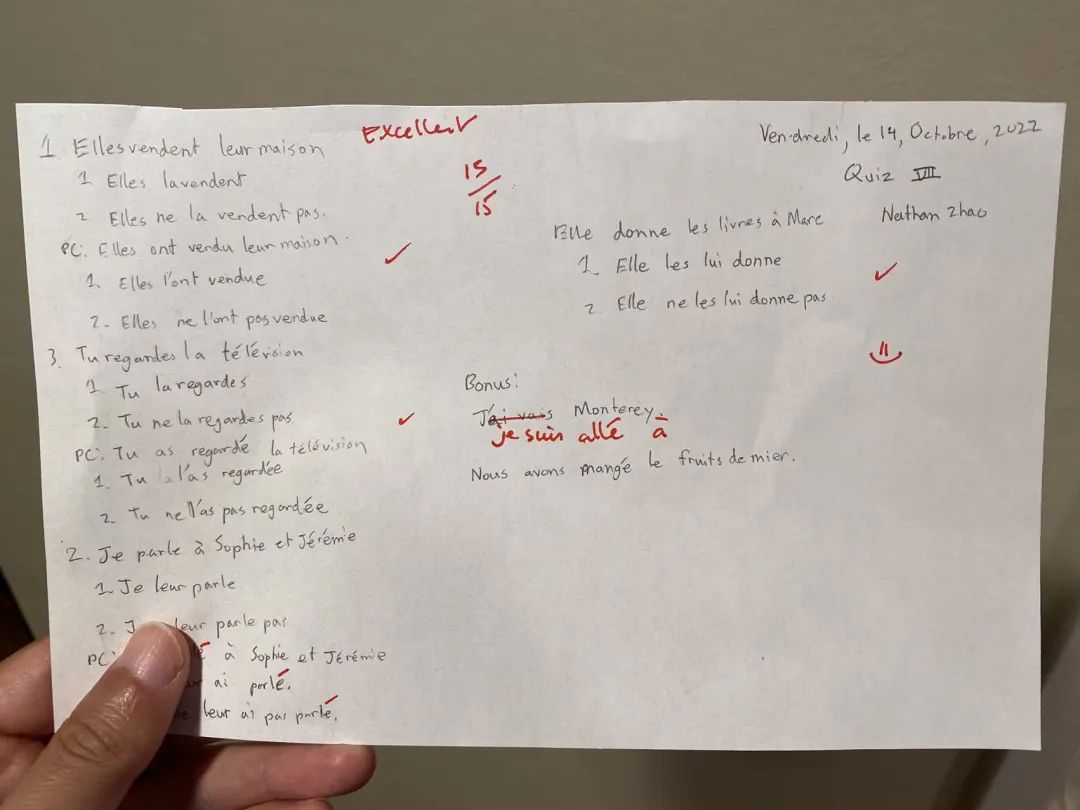 Excellent
15/15
Vendredi, le 14, Octobre, 2022
Quiz VII
Nathan Zhao
1 Elles vendent leur maison
1 Elles la vendent
2. Elles ne la vendent pas.
PC: Elles ont vendu leur maison.
1. Elles l'ont vendue
2. Elles ne l'ont pas vendue
3. Tu regardes la télévision
1 Tu la regardes
2. Tu ne la regardes pas
PC: Tu as regardé la télévision
1. Tu l'as regardée
2 Tu ne l'as pas regardée
2. Je parle à Sophie et Jérémie
1. Je leur parle
2. J leur parle pas
PC: é à Sophie et Jérémie
ai parlé.
leur ai pas parlé.
Elle donne les livres à Marc
1. Elle les lui donne
2. Elle ne les lui donne pas.
Bonus:
J'ai vais Monterey.
je suis allé à
Nous avons mangé le fruits de mier.